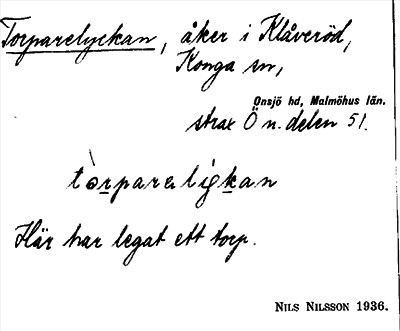 Torparelyckan, åker i Klåveröd,
Konga sn,
Onsjö hd, Malmöhus län.
strax Ö n. delen 51.
tòrparaligkan
Här har legat ett torp.
NILS NILSSON 1936.